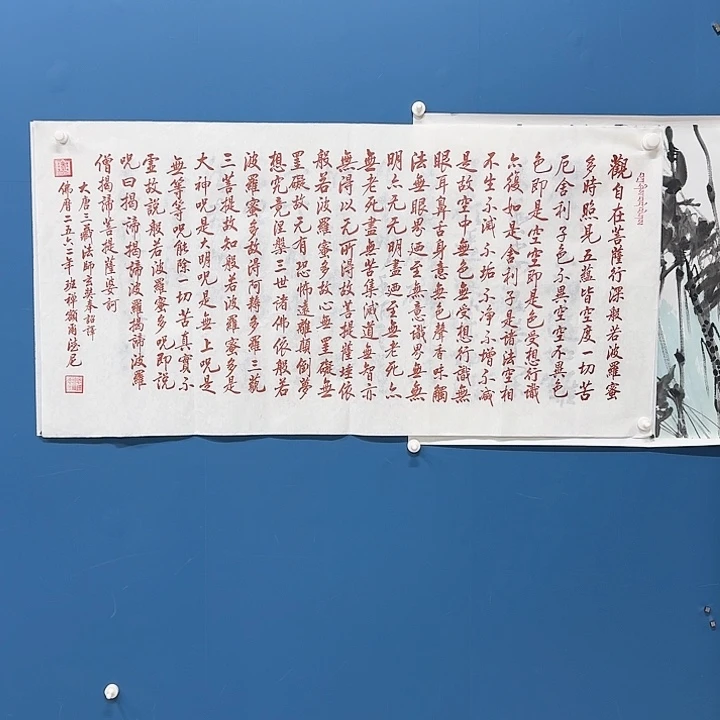 觀自在菩薩行深般若波羅蜜
多時照見五蘊皆空度一切苦
厄舍利子色不異空空不異色
色即是空空即是色受想行識
亦復如是舍利子是諸法空相
不生不滅不垢不净不增不減
是故空中無色無受想行識無
眼耳鼻舌身意無色聲香味觸
法無眼界廼至無意識界無無
明亦无无明盡廼至無老死亦
無老死盡無苦集滅道無智亦
無得以无所得故菩提薩埵依
般若波羅蜜多故心無罣礙無
罣礙故无有恐怖遠離顛倒夢
想究竟涅槃三世諸佛依般若
波羅蜜多故得阿耨多羅三藐
三菩提故知般若波羅蜜多是
大神呪是大明呪是無上呪是
無等等呪能除一切苦真實不
虛故說般若波羅蜜多呪即說
呪曰揭諦揭諦波羅揭諦波羅
僧揭諦菩提薩婆訶
大唐三藏法師玄奘奉詔譯
佛曆二五六二年班禅額爾德尼